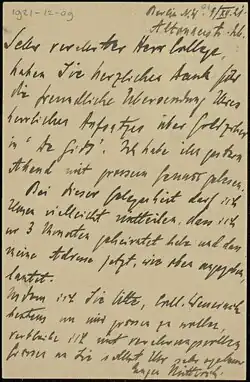 1921-12-09
Berlin N.4. 9/XII.21
Sehr verehrter Herr College,
haben Sie herzlichen Dank für
die freundliche Übersendung Ihres
herrlichen Aufsatzes über Goldziher
in "De Gids". Ich habe ihn gestern
Abend mit grossem Genuss gelesen.
Bei dieser Gelegenheit darf ich
Ihnen vielleicht mitteilen, dass ich
vor 3 Monaten geheiratet habe und dass
meine Adresse jetzt, wie oben angegeben,
lautet.
Indem ich Sie bitte, Coll.
bestens von mir grüssen zu wollen,
verbleibe ich mit verehrungsvollen
Grüssen an Sie selbst Ihr sehr ergebener
Eugen Mittwoch